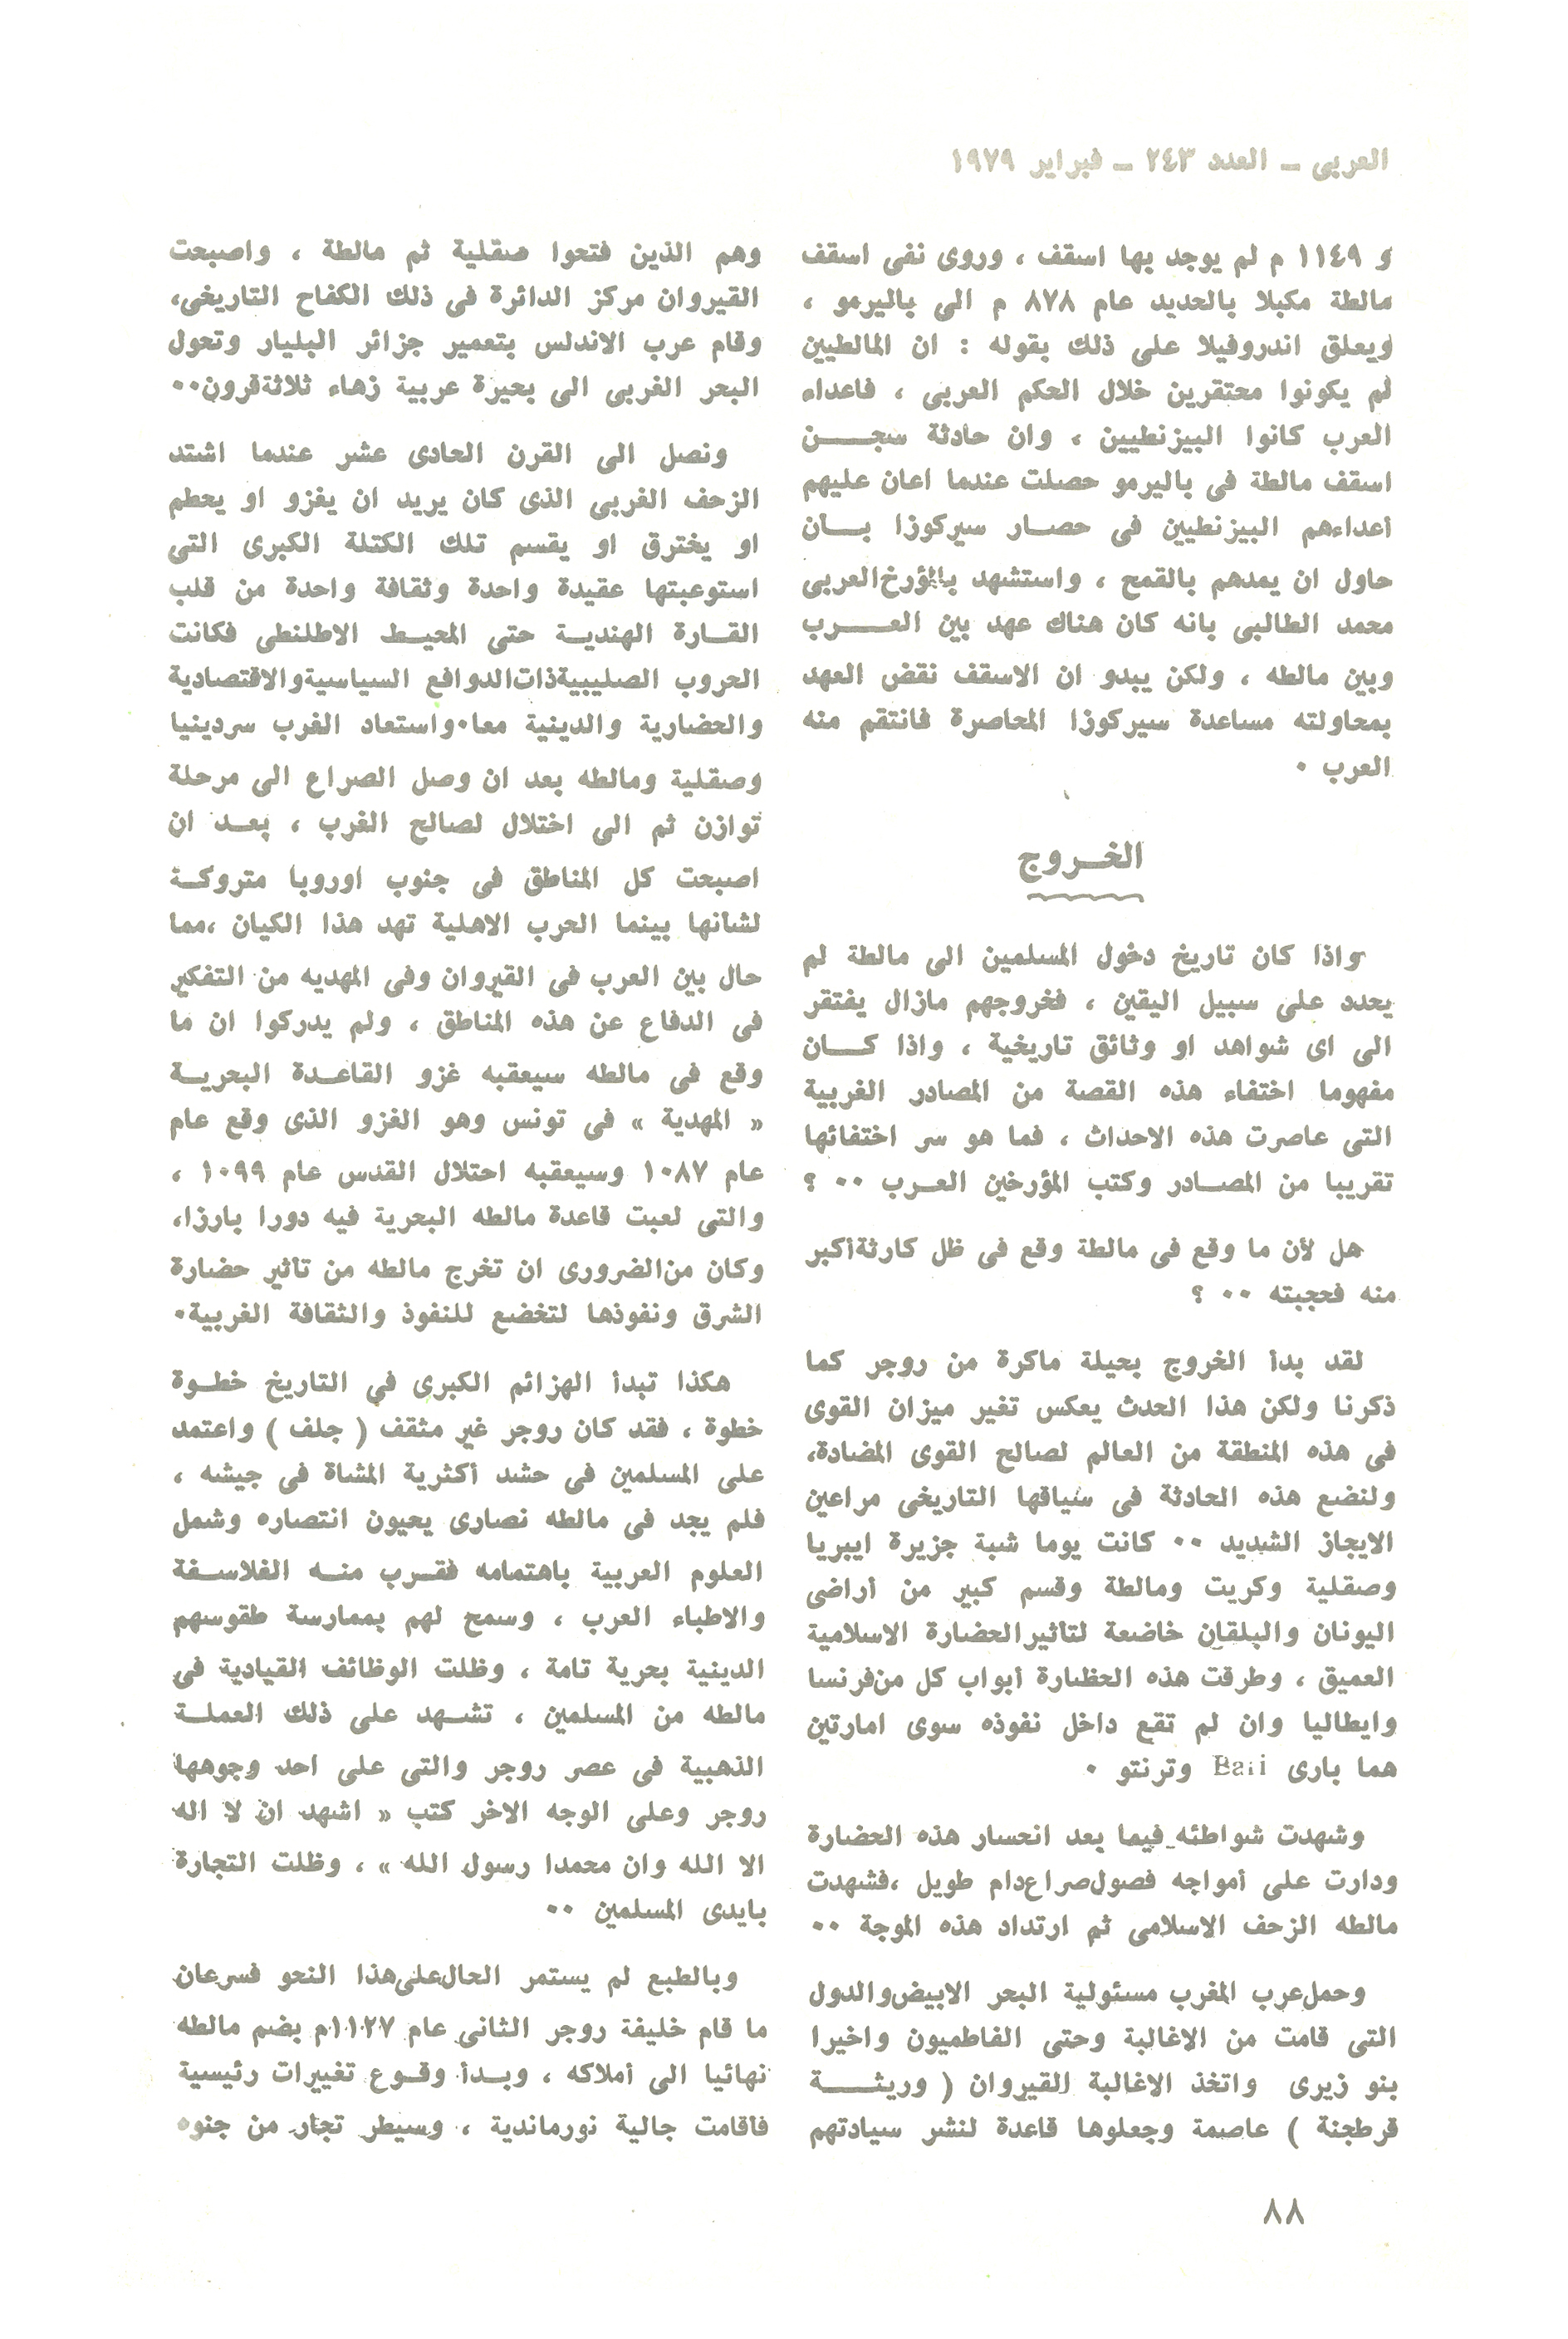 العربى ـ العدد ٢٤٣ ـ فبراير ١٩٧٩
و ١١٤٩ م لم يوجد بها اسقف ، وروى نفى اسقف
مالطة مكبلا بالحديد عام ٨٧٨ م الى باليرمو ،
ويعلق اندروفيلا على ذلك بقوله : ان المالطيين
لم يكونوا محتقرين خلال الحكم العربى ، فاعداء
العرب كانوا البيزنطيين ، وان حادثة سجـــن
اسقف مالطة فى باليرمو حصلت عندما اعان عليهم
أعداءهم البيزنطيين فى حصـار سيركوزا بــأن
حاول ان يمدهم بالقمح ، واستشهد بالمؤرخ العربى
محمد الطالبى بانه كان هناك عهد بين العـــرب
وبين مالطه ، ولكن يبدو ان الاسقف نقض العهد
بمحاولته مساعدة سيركوزا المحاصرة فانتقم منه
العرب ٠
الخـروج
واذا كان تاريخ دخول المسلمين الى مالطة لم
يحدد على سبيل اليقين ، فخروجهم مازال يفتقر
الى اى شواهد او وثائق تاريخية ، واذا كــان
مفهوما اختفاء هذه القصة من المصادر الغربية
التى عاصرت هذه الاحداث ، فما هو سر اختفائها
تقريبا من المصـادر وكتب المؤرخين العـرب ٠٠ ؟
هل لأن ما وقع فى مالطة وقع فى ظل كارثة أكبر
منه فحجبته ٠٠ ؟
لقد بدأ الخروج بحيلة ماكرة من روجر كما
ذكرنا ولكن هذا الحدث يعكس تغير ميزان القوى
فى هذه المنطقة من العالم لصالح القوى المضادة،
ولنضع هذه الحادثة فى سياقها التاريخى مراعين
الايجاز الشديد ٠٠ كانت يوما شبة جزيرة ايبريا
وصقلية وكريت ومالطة وقسم كبير من أراضى
اليونان والبلقان خاضعة لتاثير الحضارة الاسلامية
العميق ، وطرقت هذه الحظارة أبواب كل من فرنسا
وايطاليا وان لم تقع داخل نفوذه سوى امارتين
هما بارى Bari وترنتو ٠
وشهدت شواطئه فيما بعد انحسار هذه الحضارة
ودارت على أمواجه فصول صراع دام طويل ،فشهدت
مالطه الزحف الاسلامى ثم ارتداد هذه الموجة ٠٠
وحمل عرب المغرب مسئولية البحر الابيض والدول
التى قامت من الاغالبة وحتى الفاطميون واخيرا
بنو زيرى واتخذ الاغالبة القيروان ( وريثـــة
قرطجنة ) عاصمة وجعلوها قاعدة لنشر سيادتهم
وهم الذين فتحوا صقلية ثم مالطة ، واصبحت
القيروان مركز الدائرة فى ذلك الكفاح التاريخى،
وقام عرب الاندلس بتعمير جزائر البليار وتحول
البحر الغربى الى بحيرة عربية زهاء ثلاثة قرون٠٠
ونصل الى القرن الحادى عشر عندما اشتد
الزحف الغربى الذى كان يريد ان يغزو او يحطم
او يخترق او يقسم تلك الكتلة الكبرى التى
استوعبتها عقيدة واحدة وثقافة واحدة من قلب
القـارة الهنديـة حتى المحيـط الاطلنطى فكانت
الحروب الصليبية ذات الدوافع السياسية والاقتصادية
والحضارية والدينية معا٠ واستعاد الغرب سردينيا
وصقلية ومالطه بعد ان وصل الصراع الى مرحلة
توازن ثم الى اختلال لصالح الغرب ، بعـد ان
اصبحت كل المناطق فى جنوب اوروبا متروكـة
لشانها بينما الحرب الاهلية تهد هذا الكيان ،مما
حال بين العرب فى القيروان وفى المهديه من التفكير
فى الدفاع عن هذه المناطق ، ولم يدركوا ان ما
وقع فى مالطه سيعقبه غزو القاعـدة البحريـة
« المهدية » فى تونس وهو الغزو الذى وقع عام
عام ١٠٨٧ وسيعقبه احتلال القدس عام ١٠٩٩ ،
والتى لعبت قاعدة مالطه البحرية فيه دورا بارزا،
وكان من الضرورى ان تخرج مالطه من تأثير حضارة
الشرق ونفوذها لتخضع للنفوذ والثقافة الغربية٠
هكذا تبدأ الهزائم الكبرى في التاريخ خطـوة
خطوة ، فقد كان روجر غير مثقف ( جلف ) واعتمد
على المسلمين فى حشد أكثرية المشاة فى جيشه ،
فلم يجد فى مالطه نصارى يحيون انتصاره وشمل
العلوم العربية باهتمامه فقـرب منـه الفلاسـفة
والاطباء العرب ، وسمح لهم بممارسة طقوسهم
الدينية بحرية تامة ، وظلت الوظائف القيادية فى
مالطه من المسلمين ، تشـهد على ذلك العملـة
الذهبية فى عصر روجر والتى على احد وجوهها
روجر وعلى الوجه الاخر كتب « اشهد ان لا اله
الا الله وان محمدا رسول الله » ، وظلت التجارة
بايدى المسلمين ٠٠
وبالطبع لم يستمر الحال على هذا النحو فسرعان
ما قام خليفة روجر الثانى عام ١١٢٧م بضم مالطه
نهائيا الى أملاكه ، وبـدأ وقـوع تغييرات رئيسية
فاقامت جالية نورماندية ، وسيطر تجار من جنوه
٨٨